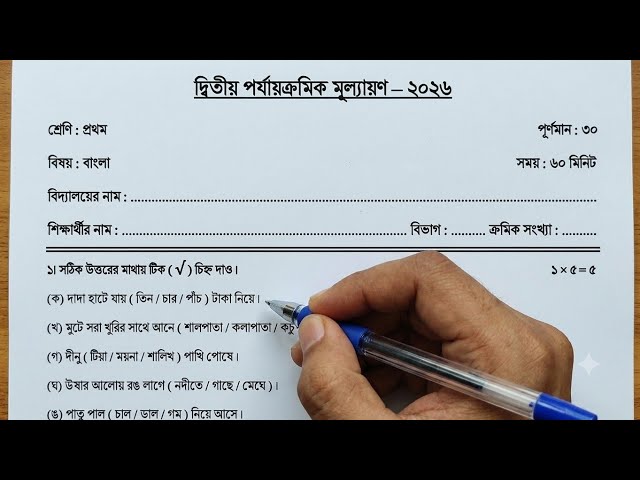 দ্বিতীয় পর্যায়ক্রমিক মূল্যায়ণ – ২০২৬
শ্রেণি : প্রথম পূর্ণমান : ৩০
বিষয় : বাংলা সময় : ৬০ মিনিট
বিদ্যালয়ের নাম :
শিক্ষার্থীর নাম : বিভাগ : ক্রমিক সংখ্যা :
১। সঠিক উত্তরের মাথায় টিক ( √ ) চিহ্ন দাও। ১ × ৫ = ৫
(ক) দাদা হাটে যায় ( তিন / চার / পাঁচ ) টাকা নিয়ে।
(খ) মুটে সরা খুরির সাথে আনে ( শালপাতা / কলাপাতা /
(গ) দীনু ( টিয়া / ময়না / শালিখ ) পাখি পোষে।
(ঘ) উষার আলোয় রঙ লাগে ( নদীতে / গাছে / মেঘে )।
(ঙ) পাতু পাল ( চাল / ডাল / গম ) নিয়ে আসে।